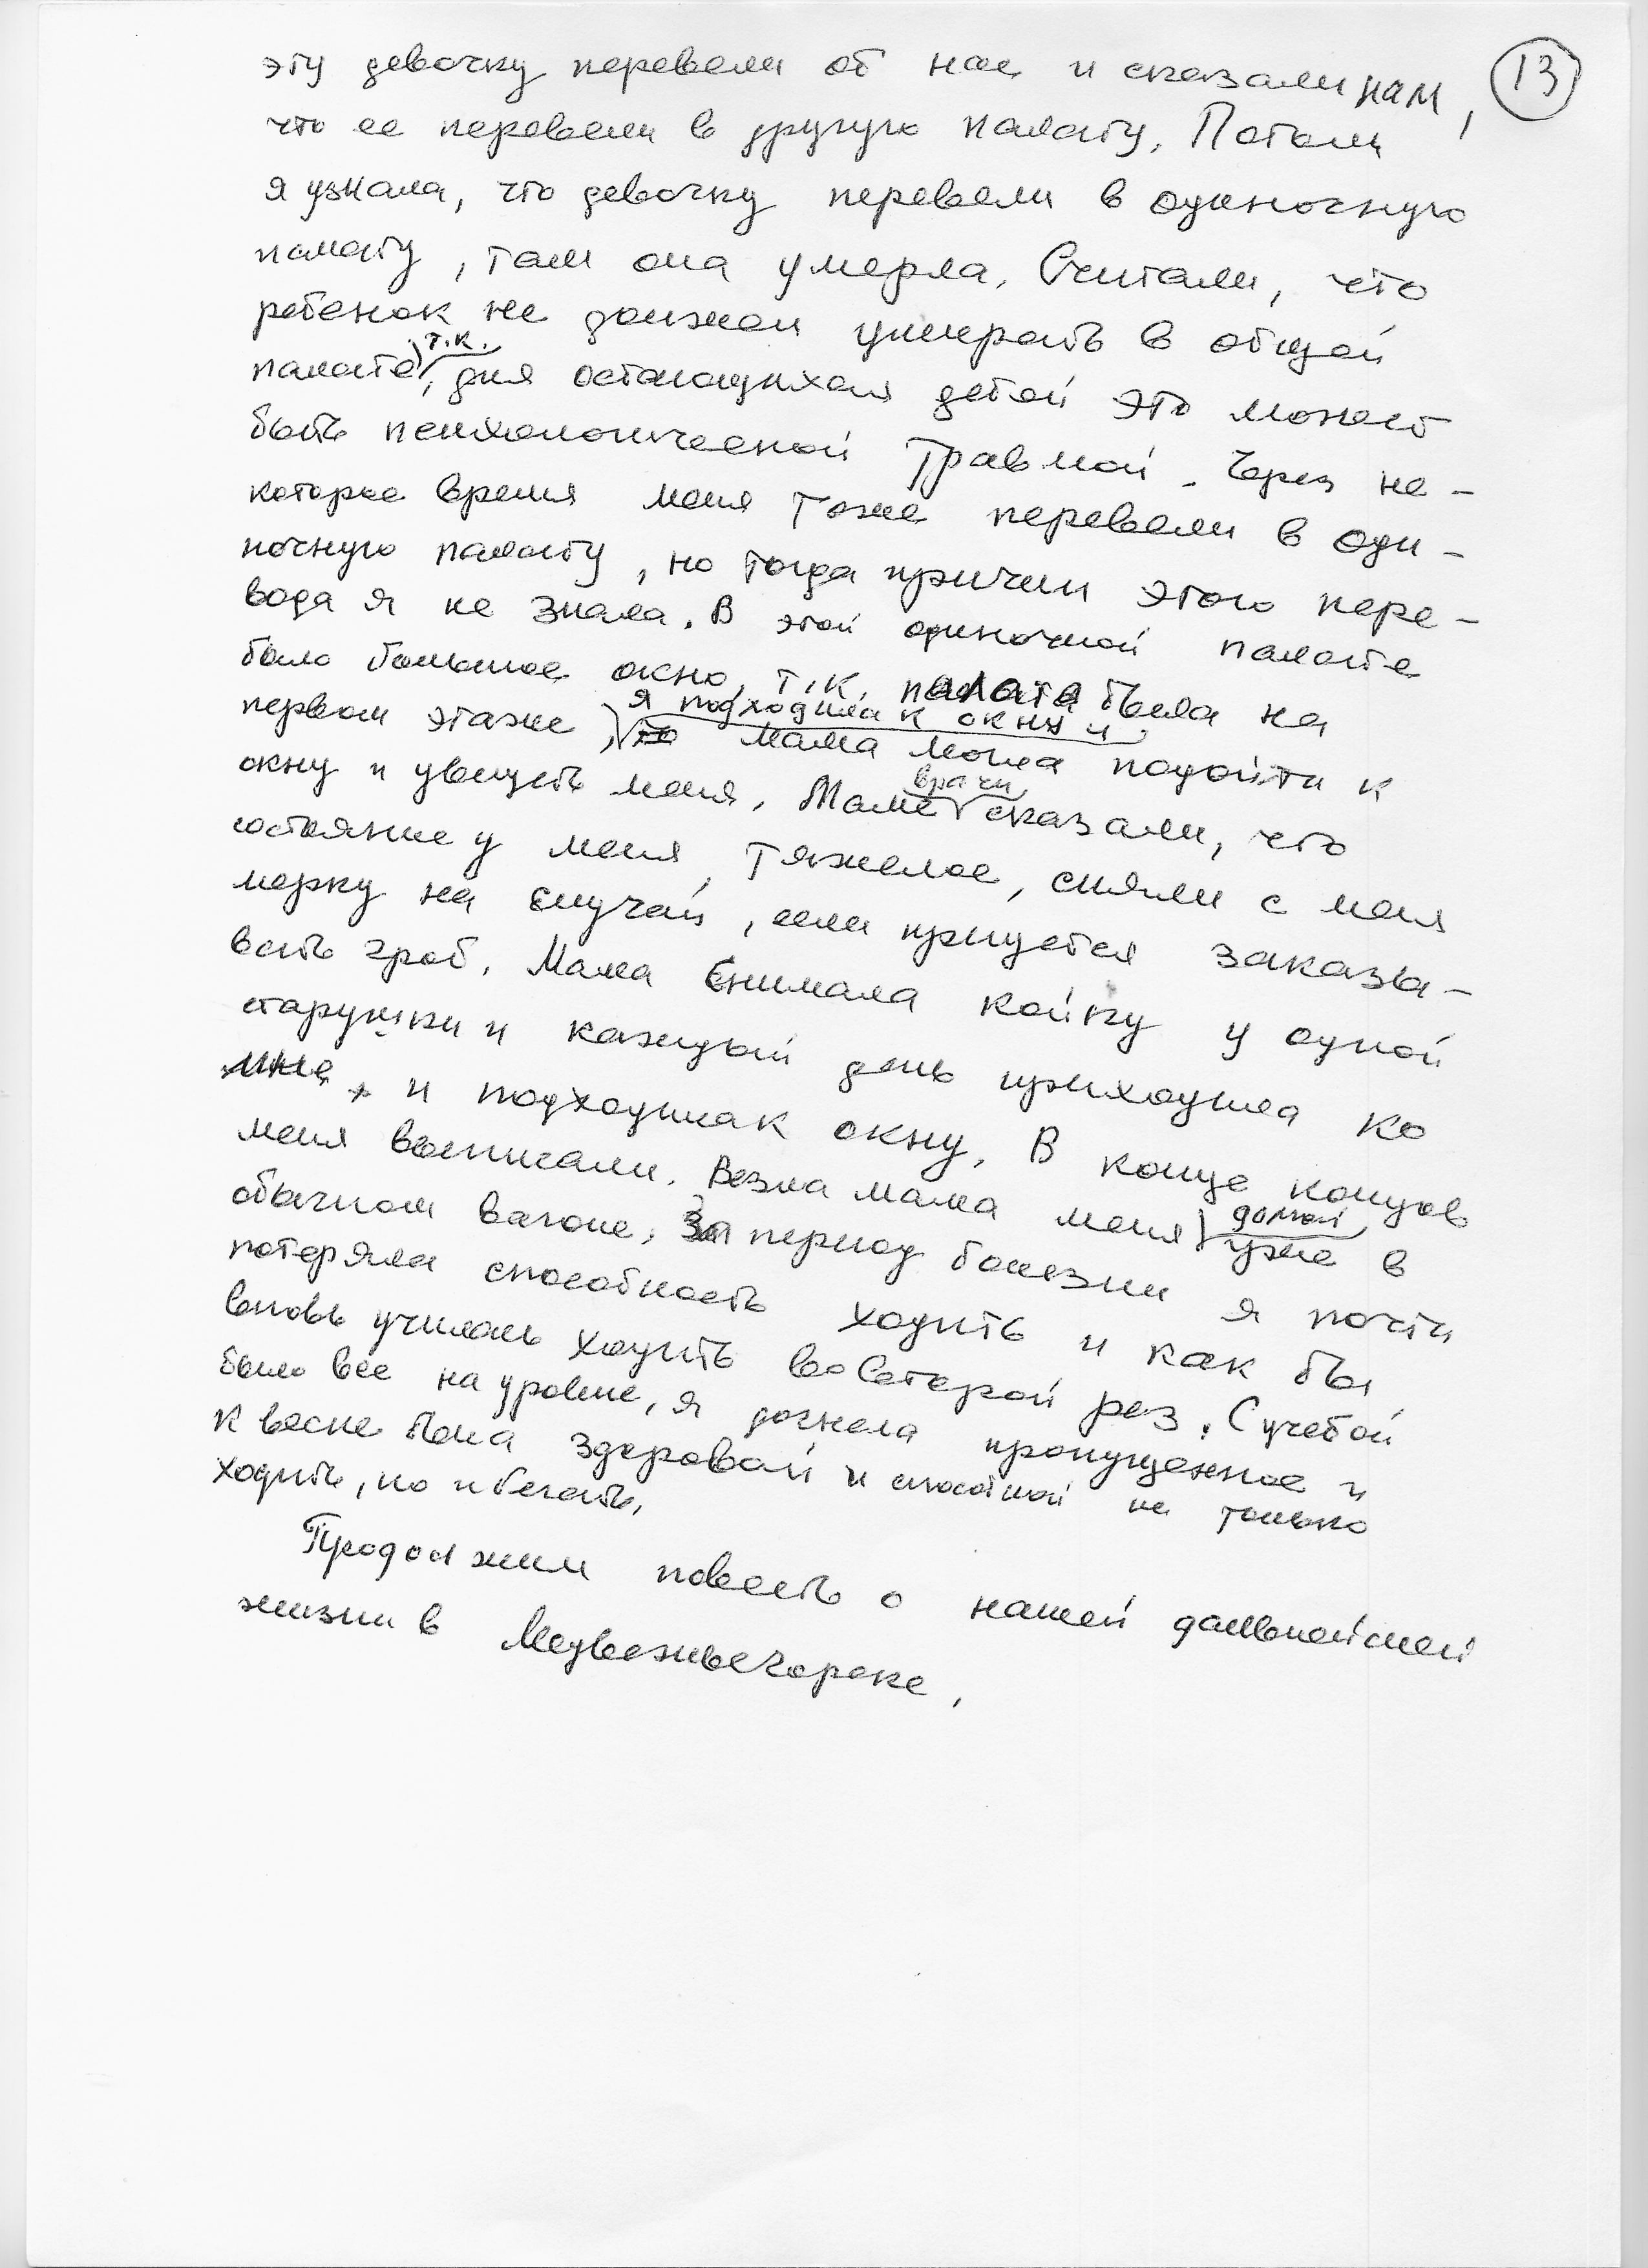 13
эту девочку перевели от нас и сказали нам,
что ее перевели в другую палату. Потом
я узнала, что девочку перевели в одиночную
палату, там она умерла. Считали, что
ребенок не должен умирать в общей
т.к.
палате, для остающихся детей это может
быть психологической травмой. Через не-
которое время меня тоже перевели в оди-
ночную палату, но тогда причин этого пере-
вода я не знала. В этой одиночной палате
было большое окно, т.к. палата была на
я подходила к окну и
первом этаже, то мама могла подойти к
врачи
окну и увидеть меня. Маме сказали, что
состояние у меня тяжелое, сняли с меня
мерку на случай, если придется заказы-
вать гроб. Мама снимала койку у одной
старушки и каждый день приходила ко
мне, и подходила к окну. В конце концов
домой
меня выписали. Везла мама меня уже в
обычном вагоне. За период болезни я почти
потеряла способность ходить и как бы
вновь училась ходить во второй раз. С учебой
было все на уровне, я догнала пропущенное и
к весне была здоровой и способной не только
ходить, но и бегать.
Продолжим повесть о нашей дальнейшей
жизни в Медвежьегорске.